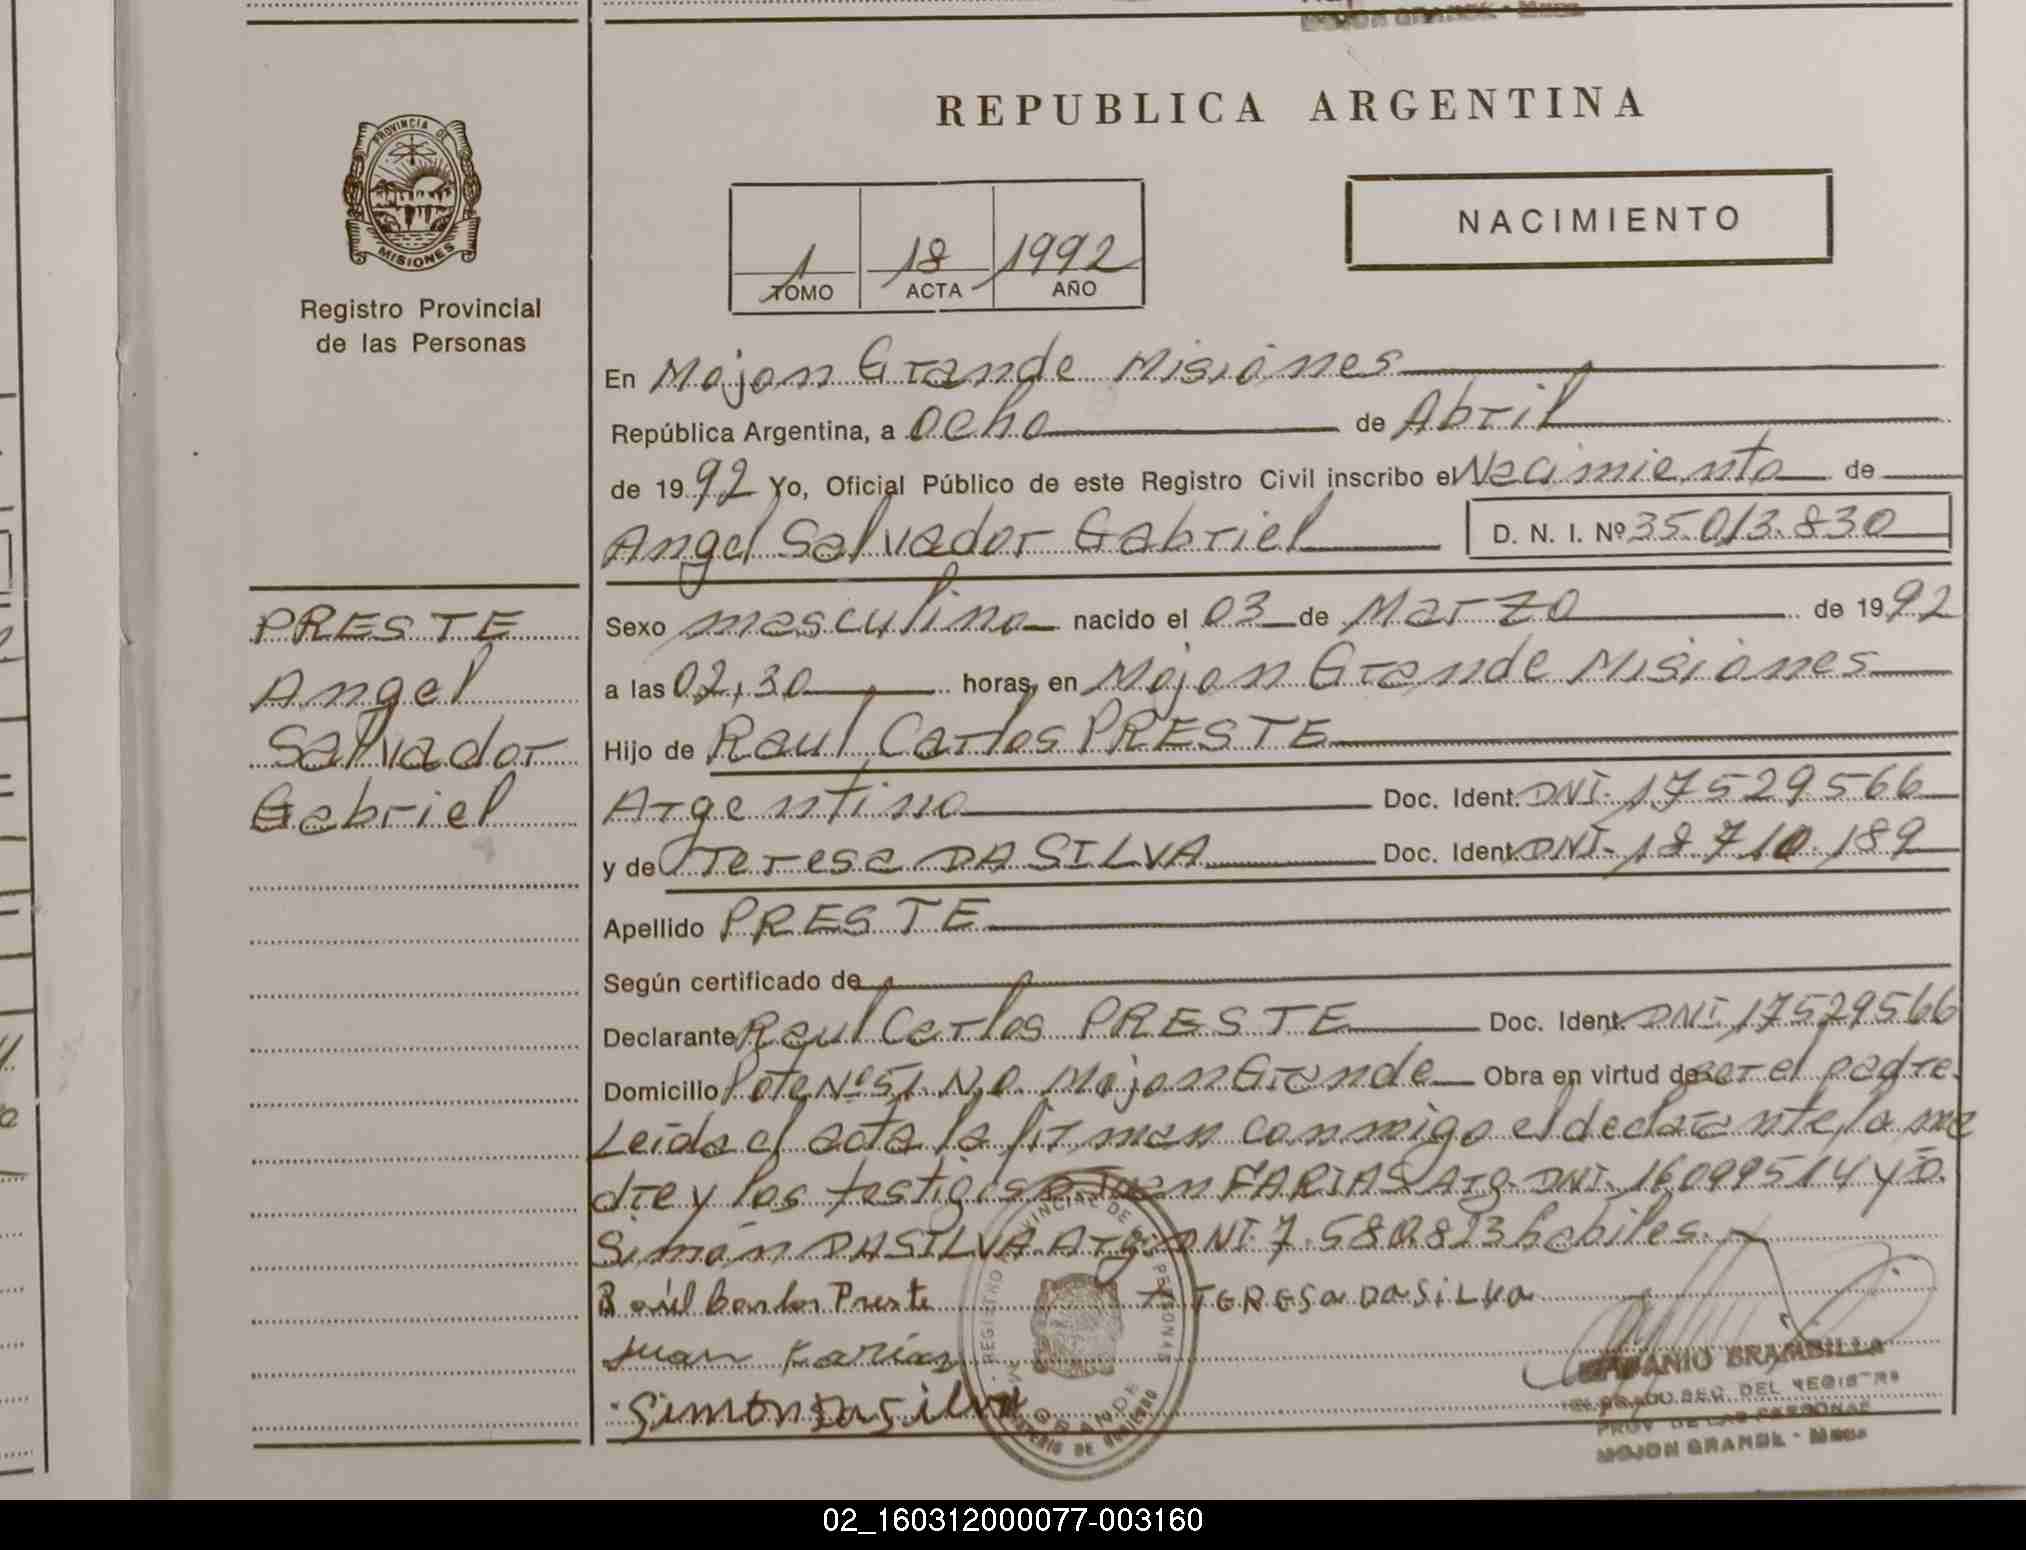 REPUBLICA ARGENTINA
PROVINCIA DE
MISIONES
Registro Provincial
de las Personas
NACIMIENTO
1 18 1992
TOMO ACTA AÑO
En Mojon Grande Misiones
República Argentina, a ocho de Abril
de 1992 Yo, Oficial Público de este Registro Civil inscribo el Nacimiento de
Angel Salvador Gabriel D. N. I. Nº 35.013.830
PRESTE
Angel
Salvador
Gabriel
Sexo masculino nacido el 03 de Marzo de 1992
a las 02,30 horas, en Mojon Grande Misiones
Hijo de Raul Carlos PRESTE
Argentino Doc. Ident. DNI. 17529566
y de Teresa DA SILVA Doc. Ident. DNI. 18.710.189
Apellido PRESTE
Según certificado de
Declarante Raul Carlos PRESTE Doc. Ident. DNI. 17529566
Domicilio Lote Nº 51. Mojon Grande Obra en virtud de ser el padre.
Leida el acta la firman conmigo el declarante, la ma
dre y los testigos Juan FARIAS Arg. DNI. 16099514 y D.
Simón DA SILVA Arg. DNI. 7.580.823 habiles.
Raúl Carlos Preste TERESA DA SILVA
Juan Farías
Simon Da Silva
REGISTRO PROVINCIAL DE PERSONAS
BRAMBILLA
DEL REGISTRO
PROV DE LAS PERSONAS
MOJON GRANDE - Mnes
02_160312000077-003160